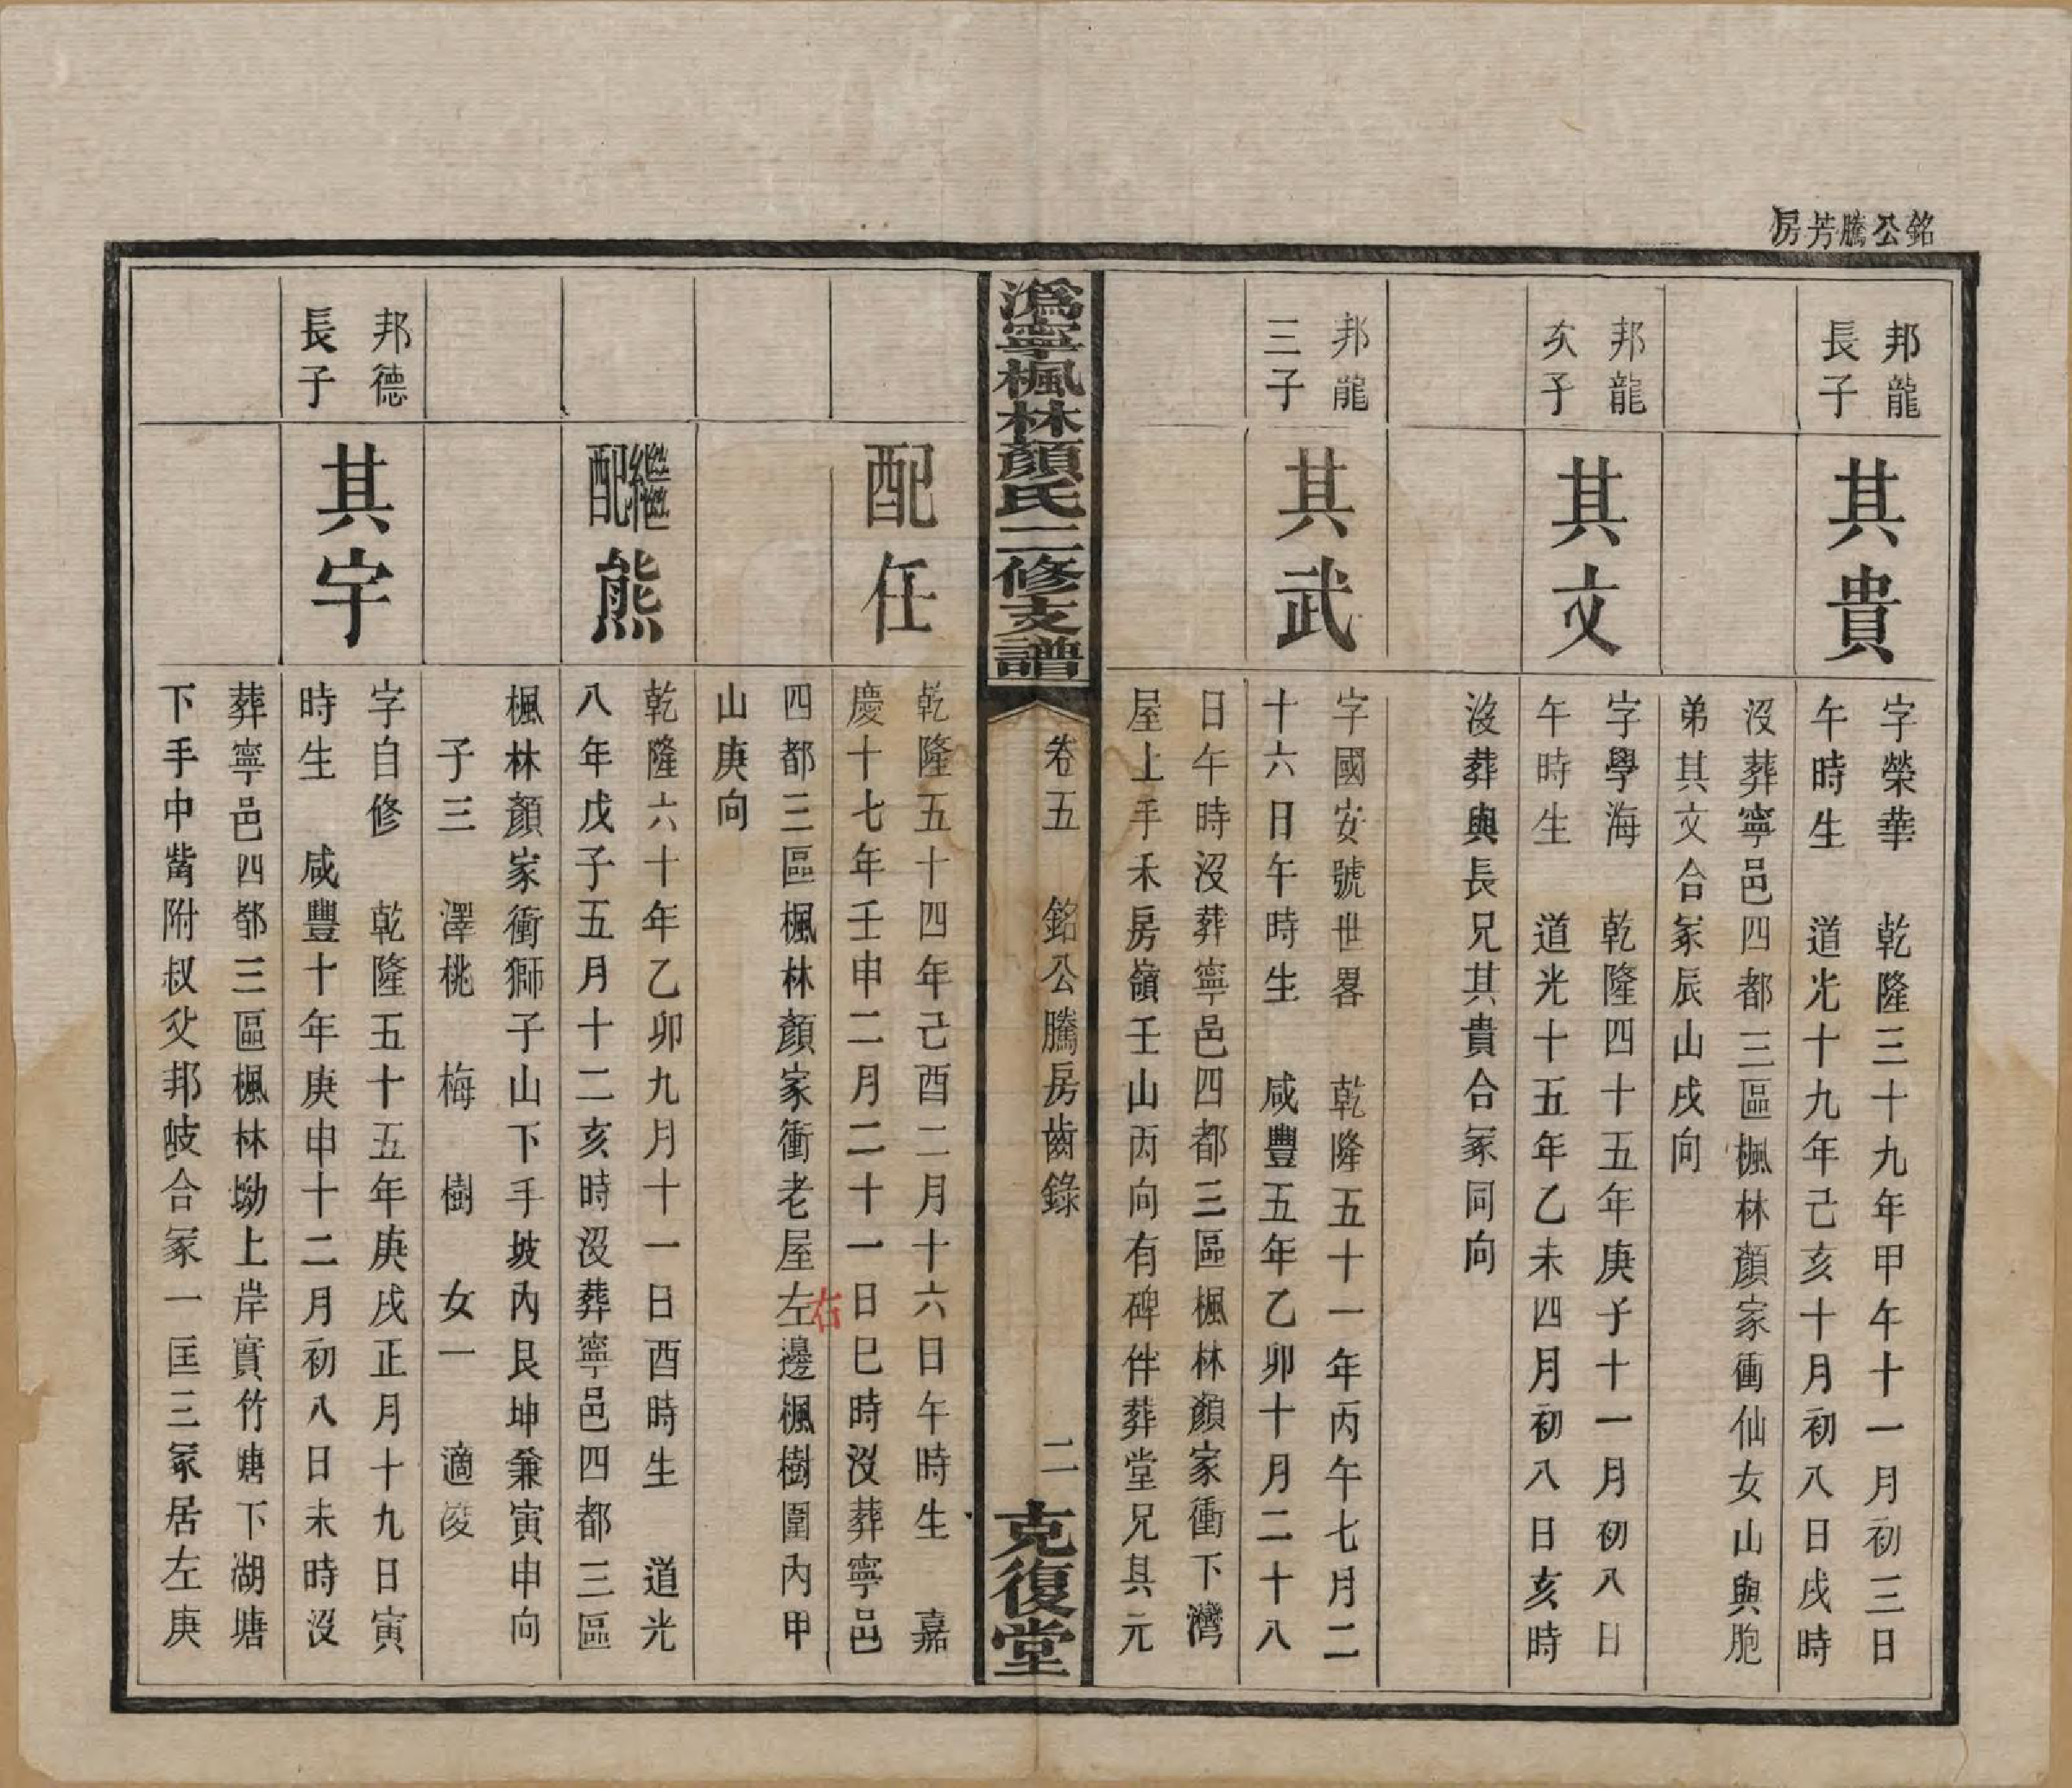 銘公騰芳房
邦龍
長子
其貴
字榮華　乾隆三十九年甲午十一月初三日
午時生　道光十九年己亥十月初八日戌時
沒葬寧邑四都三區楓林顏家衝仙女山與胞
弟其文合冢辰山戌向
邦龍
次子
其文
字學海　乾隆四十五年庚子十一月初八日
午時生　道光十五年乙未四月初八日亥時
沒葬與長兄其貴合冢同向
邦龍
三子
其武
字國安號世畧　乾隆五十一年丙午七月二
十六日午時生　咸豐五年乙卯十月二十八
日午時沒葬寧邑四都三區楓林顏家衝下灣
屋上手禾房嶺壬山丙向有碑伴葬堂兄其元
溈寧楓林顏氏二修支譜
卷五　銘公騰房齒錄
二
克復堂
配任
乾隆五十四年己酉二月十六日午時生　嘉
慶十七年壬申二月二十一日巳時沒葬寧邑
四都三區楓林顏家衝老屋左邊楓樹圍內甲
右
山庚向
繼配熊
乾隆六十年乙卯九月十一日酉時生　道光
八年戊子五月十二亥時沒葬寧邑四都三區
楓林顏家衝獅子山下手坡內艮坤兼寅申向
子三　澤桃　梅　樹　女一　適
邦德
長子
其宇
字自修　乾隆五十五年庚戌正月十九日寅
時生　咸豐十年庚申十二月初八日未時沒
葬寧邑四都三區楓林坳上岸實竹塘下湖塘
下手中嘴附叔父邦岐合冢一匡三冢居左庚